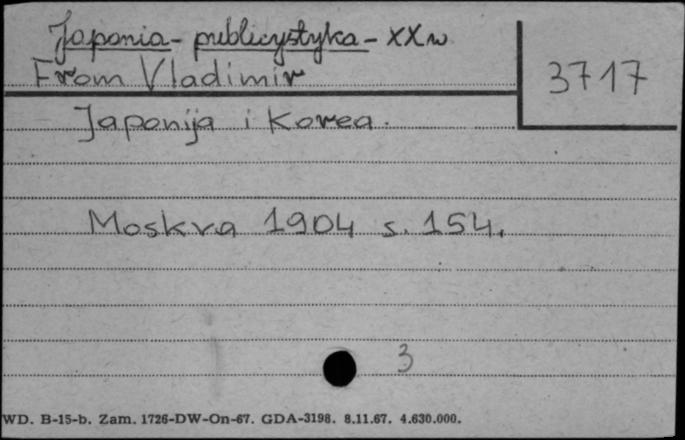 Japonia - publicystyka - XX w
From Vladimir
3717
Japonija i Korea.
Moskva 1904 s. 154.
3
WD. B-15-b. Zam. 1726-DW-On-67. GDA-3198. 8.11.67. 4.630.000.